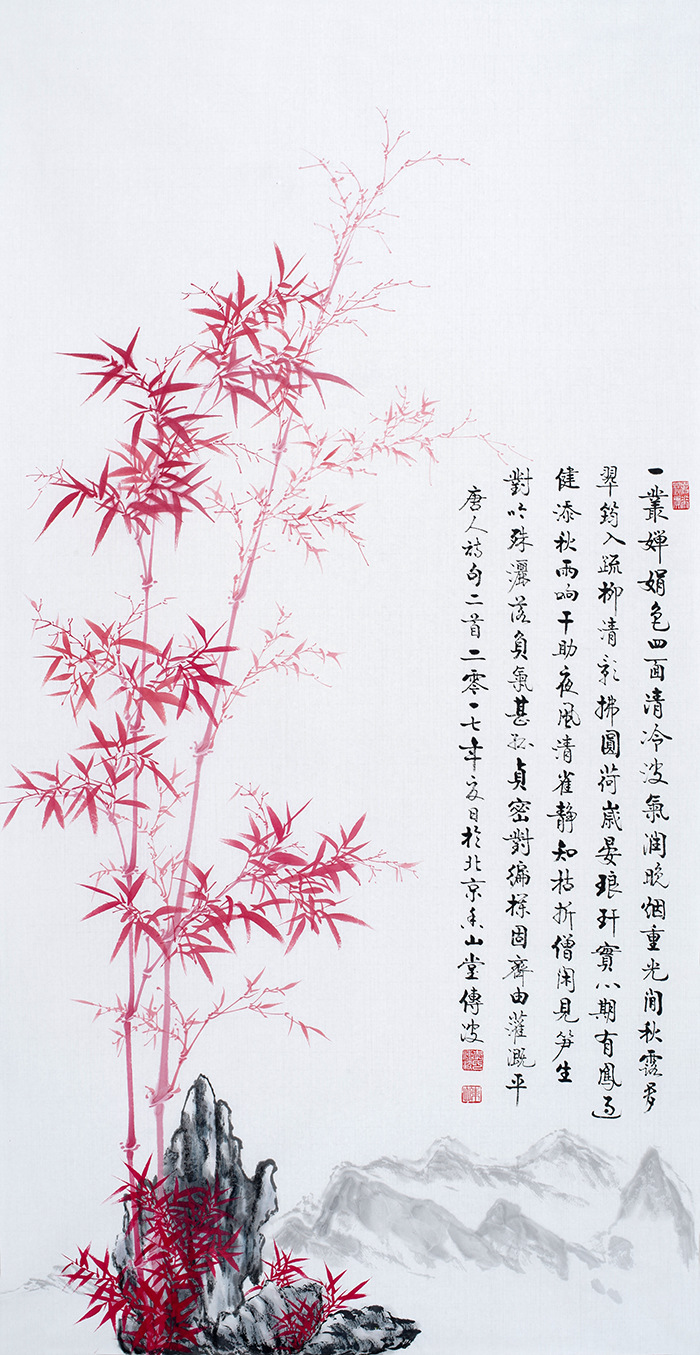 一叢嬋娟色四面清冷波氣潤晚烟重光闲秋露多
翠筠入疏柳清影拂圓荷歲晏琅玕實心期有鳳過
健添秋雨响干助夜風清雀静知枯折僧闲見笋生
對吟殊灑落負氣甚孤貞密對編探固齊由灌溉平
唐人詩句二首二零一七年夏日於北京香山堂傳波